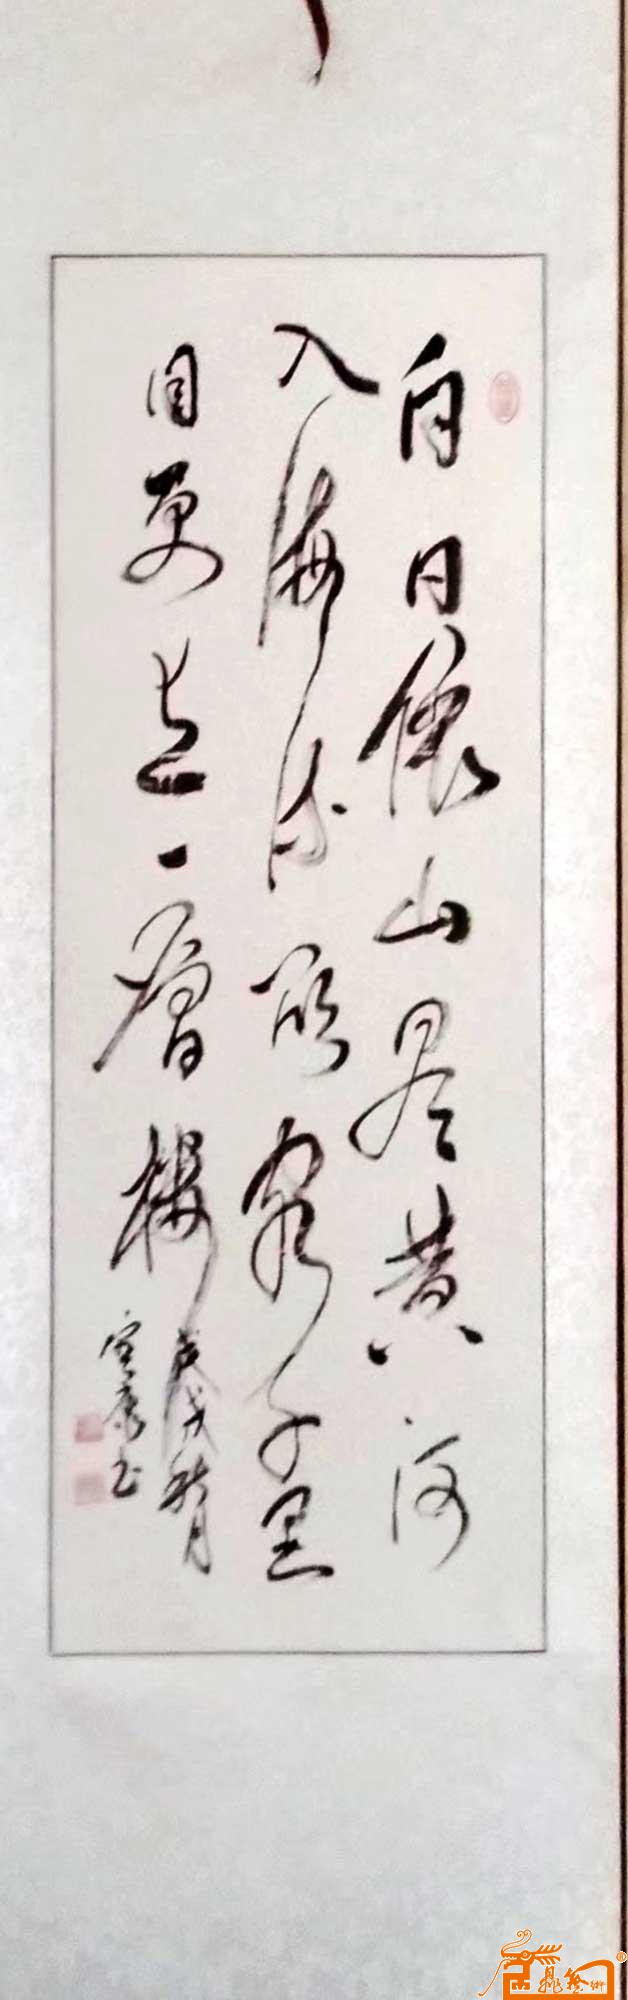 白日依山尽黄河
入海流欲穷千里
目更上一层楼
戊戌秋月
宝康书